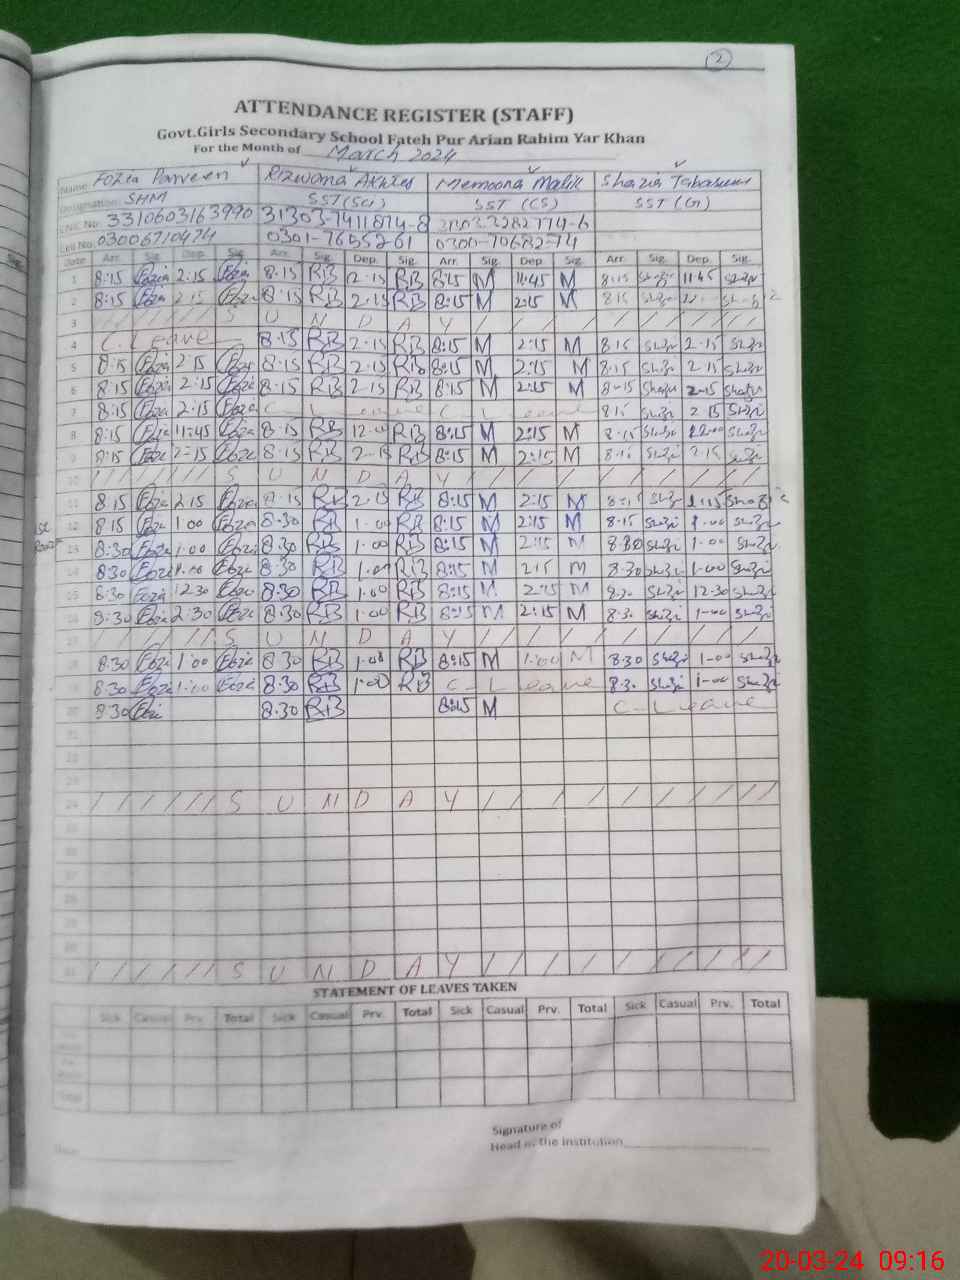 2
ATTENDANCE REGISTER (STAFF)
Govt.Girls Secondary School Fateh Pur Arian Rahim Yar Khan
For the Month of March 2024
Name Fozia Parveen Rizwana Akhter Memoona Malik Shazia Tabasum
Designation SHM SST(Sci) SST (CS) SST (G)
CNIC No. 3310603163990 31303-7411874-8
Cell No. 03006710474 0301-7655261 0300-7068274
Date Arr. Sig. Dep. Sig. Arr. Sig. Dep. Sig. Arr. Sig. Dep. Sig. Arr. Sig. Dep. Sig.
1 8:15 Fozia 2:15 Fozia 8:15 RB 12:15 RB 8:15 M 11:45 M 8:15 Shazi 11:45 Shazi
2 8:15 Fozia 2:15 Fozia 8:15 RB 2:15 RB 8:15 M 2:15 M 8:15 Shazi
3 / / / / / / S U N D A Y / / / / / / /
4 C. Leave 8:15 RB 2:15 RB 8:15 M 2:15 M 8:15 Shazi 2:15 Shazi
5 8:15 Fozia 2:15 Fozia 8:15 RB 2:15 RB 8:15 M 2:15 M 8:15 Shazi 2:15 Shazi
6 8:15 Fozia 2:15 Fozia 8:15 RB 2:15 RB 8:15 M 2:15 M 8:15 Shazi 2:15 Shazi
7 8:15 Fozia 2:15 Fozia C-Leave C-Leave 8:15 Shazi 2:15 Shazi
8 8:15 Fozia 11:45 Fozia 8:15 RB 12:00 RB 8:15 M 2:15 M 8:15 Shazi 12:00 Shazi
9 8:15 Fozia 2:15 Fozia 8:15 RB 2:15 RB 8:15 M 2:15 M 8:15 Shazi 2:15 Shazi
10 / / / / / / S U N D A Y / / / / / / /
11 8:15 Fozia 2:15 Fozia 8:15 RB 2:15 RB 8:15 M 2:15 M 8:15 Shazi 2:15 Shazia
12 8:15 Fozia 1:00 Fozia 8:30 RB 1:00 RB 8:15 M 2:15 M 8:15 Shazi 1:00 Shazi
13 8:30 Fozia 1:00 Fozia 8:30 RB 1:00 RB 8:15 M 2:15 M 8:30 Shazi 1:00 Shazi
14 8:30 Fozia 1:00 Fozia 8:30 RB 1:00 RB 8:15 M 2:15 M 8:30 Shazi 1:00 Shazi
15 8:30 Fozia 12:30 Fozia 8:30 RB 1:00 RB 8:15 M 2:15 M 8:30 Shazi 12:30 Shazi
16 8:30 Fozia 2:30 Fozia 8:30 RB 1:00 RB 8:15 M 2:15 M 8:30 Shazi 1:00 Shazi
17 / / / / / / S U N D A Y / / / / / / /
18 8:30 Fozia 1:00 Fozia 8:30 RB 1:00 RB 8:15 M 1:00 M 8:30 Shazi 1:00 Shazi
19 8:30 Fozia 1:00 Fozia 8:30 RB 1:00 RB C-Leave 8:30 Shazi 1:00 Shazi
20 8:30 Fozia 8:30 RB 8:15 M C-Leave
21
22
23
24 / / / / / / S U N D A Y / / / / / / /
25
26
27
28
29
30
31 / / / / / / S U N D A Y / / / / / / /
STATEMENT OF LEAVES TAKEN
Sick Casual Prv. Total Sick Casual Prv. Total Sick Casual Prv. Total Sick Casual Prv. Total
Total
Signature of
Head of the Institution
20-03-24 09:16